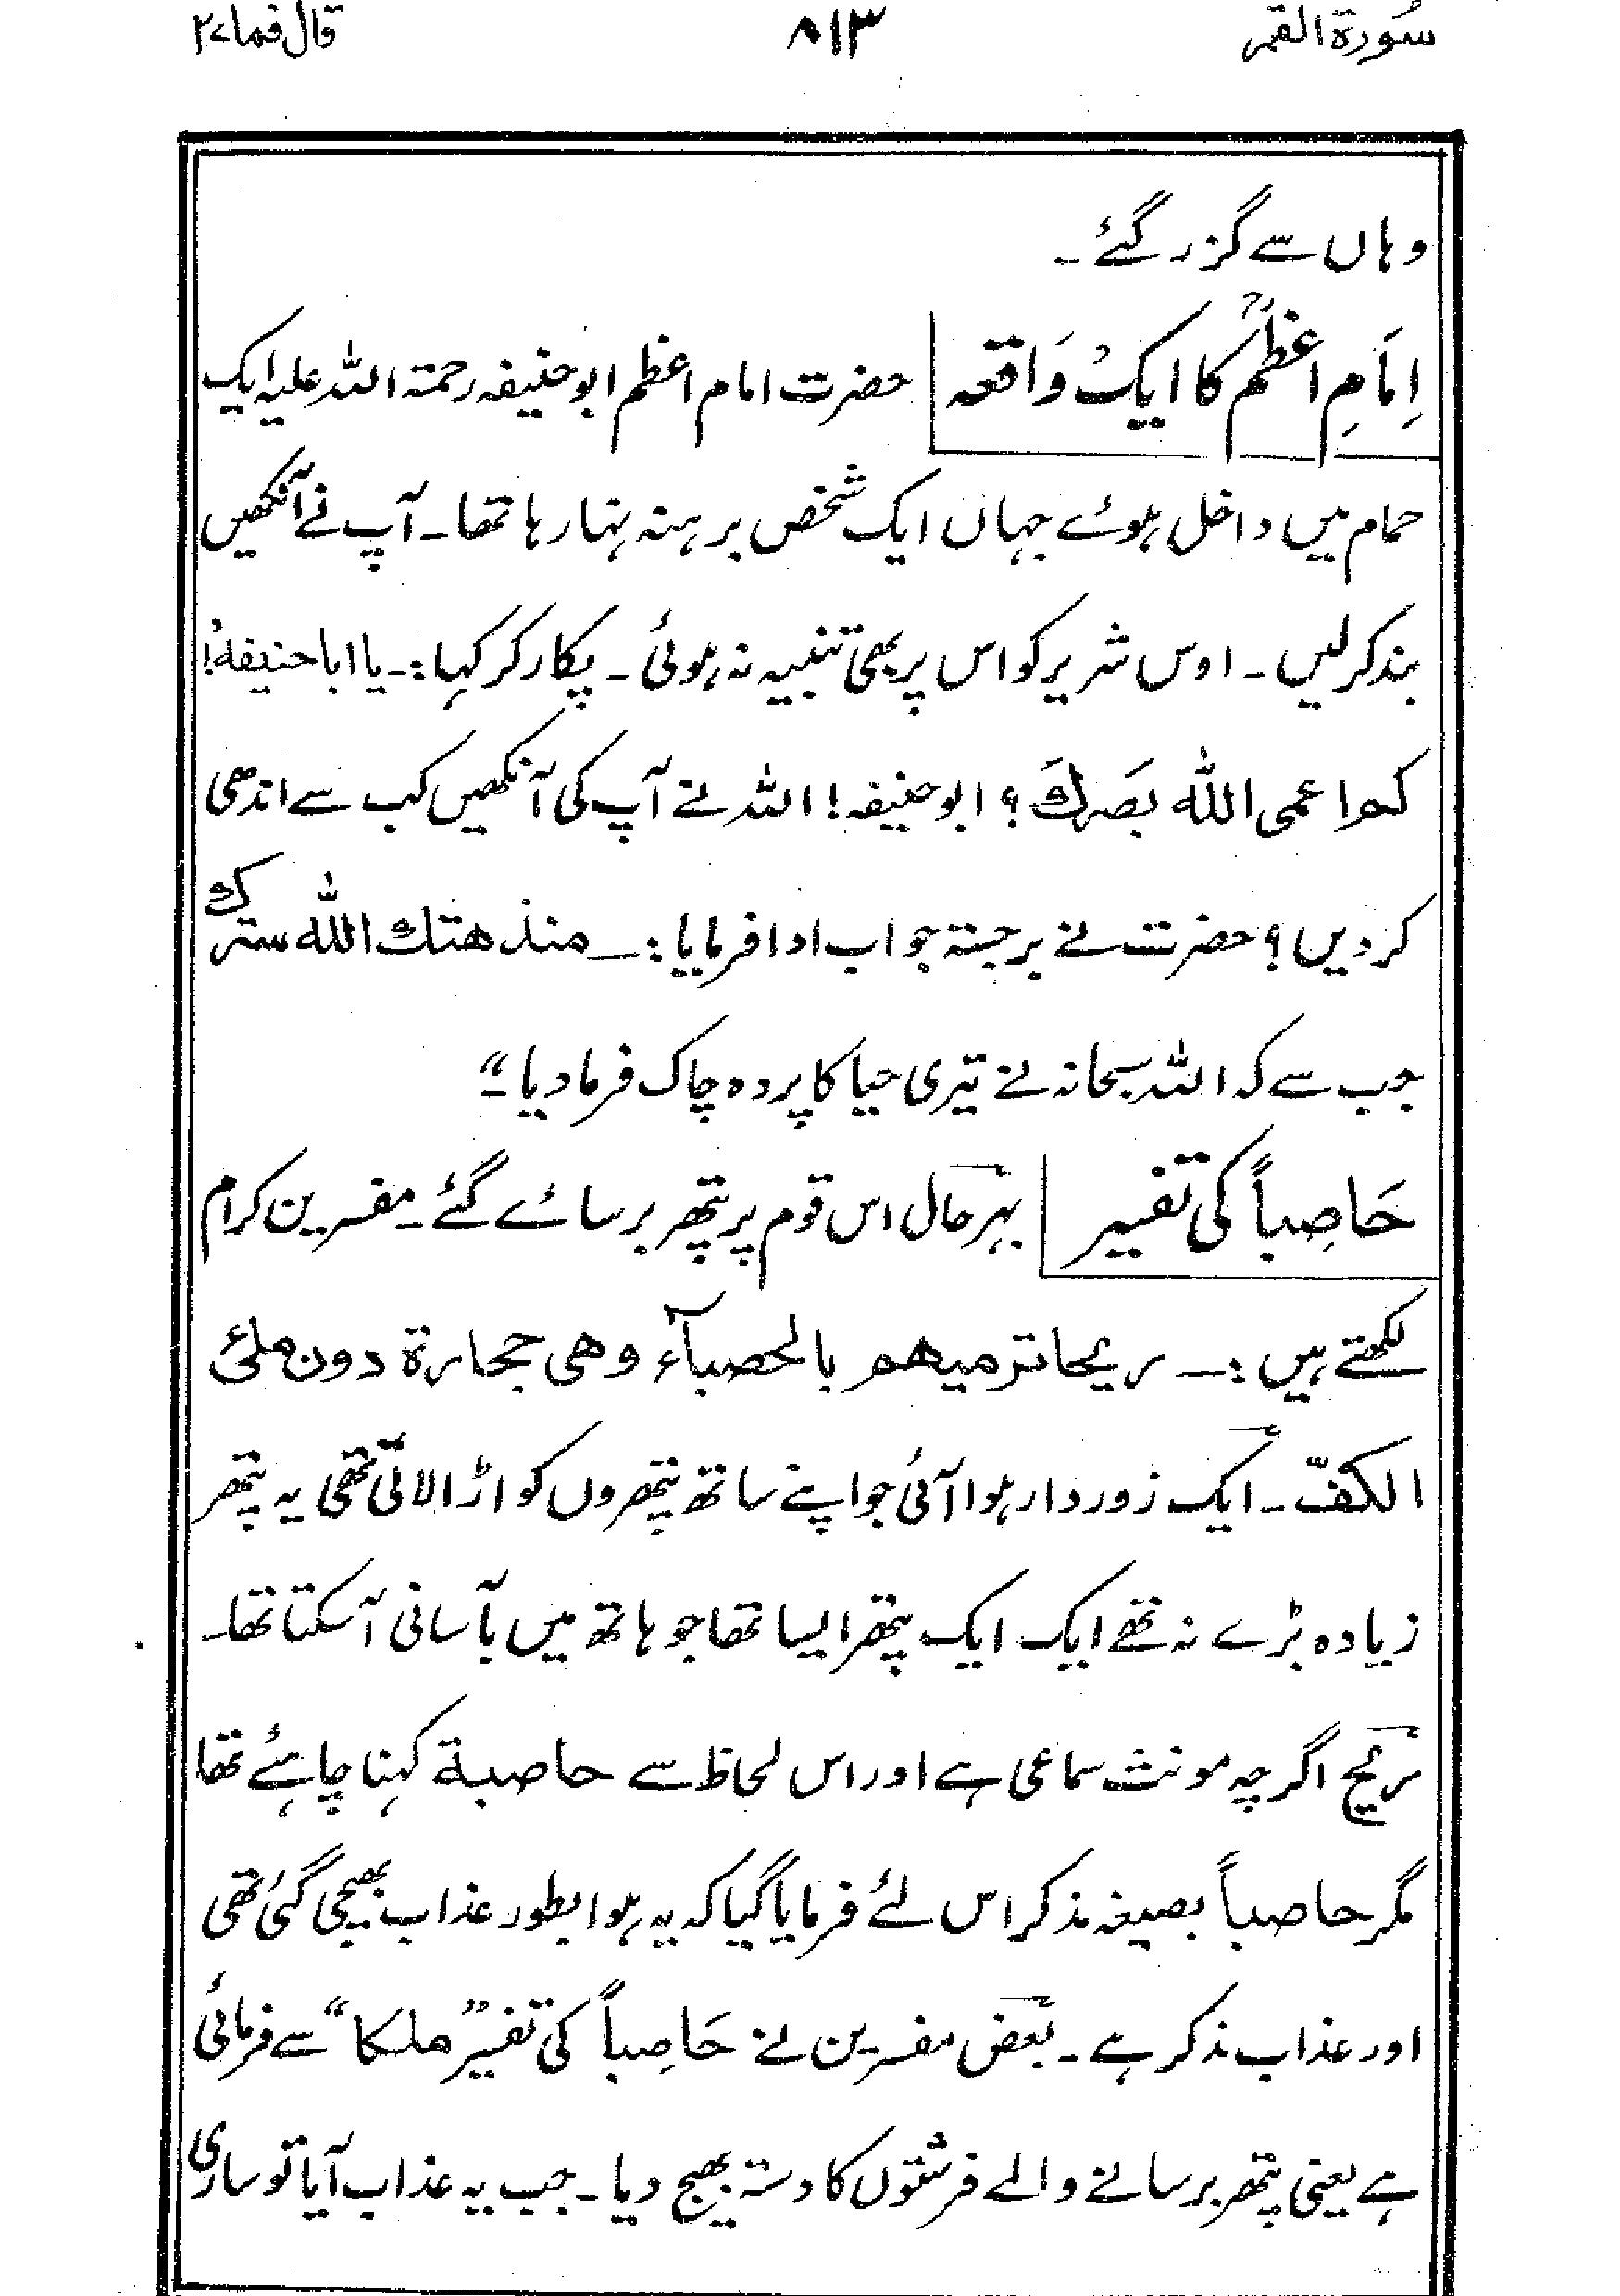 سُورة القمر ۸۱۳ قال فما ۲۷
وہاں سے گزر گئے ۔
اِمَامِ اعظمؒ کا ایک وَاقعہ حضرت امام اعظم ابو حنیفہ رحمتہ اللہ علیہ ایک
حمام میں داخل ہوئے جہاں ایک شخص برہنہ نہا رہا تھا ۔ آپ نے آنکھیں
بند کر لیں ۔ اوس شریر کو اس پر بھی تنبیہ نہ ہوئی ۔ پکار کر کہا :۔ یا ابا حنیفہ!
کم اعمی اللہ بَصَرَكَ ؟ ابو حنیفہ ! اللہ نے آپ کی آنکھیں کب سے اندھی
کر دیں ؟ حضرت نے برجستہ جواب ادا فرمایا :۔ منذ ھتك اللہ سترك
جب سے کہ اللہ سبحانہ نے تیری حیا کا پردہ چاک فرما دیا ۔“
حَاصِباً کی تفسیر بہر حال اس قوم پر پتھر برسائے گئے ۔ مفسرین کرام
لکھتے ہیں :۔ ریحا ترمیھم بالحصبآء وھی حجارۃ دون ملئ
الکفّ ۔ ایک زور دار ہوا آئی جو اپنے ساتھ پتھروں کو اڑا لاتی تھی یہ پتھر
زیادہ بڑے نہ تھے ایک ایک پتھر ایسا تھا جو ہاتھ میں بآسانی آ سکتا تھا ۔
ریح اگرچہ مونث سماعی ہے اور اس لحاظ سے حاصبۃ کہنا چاہئے تھا
مگر حاصباً بصیغہ مذکر اس لئے فرمایا گیا کہ یہ ہوا بطور عذاب بھیجی گئی تھی
اور عذاب مذکر ہے ۔ بعض مفسرین نے حَاصِباً کی تفسیر ”ملکا“ سے فرمائی
ہے یعنی پتھر برسانے والے فرشتوں کا دستہ بھیج دیا ۔ جب یہ عذاب آیا تو ساری